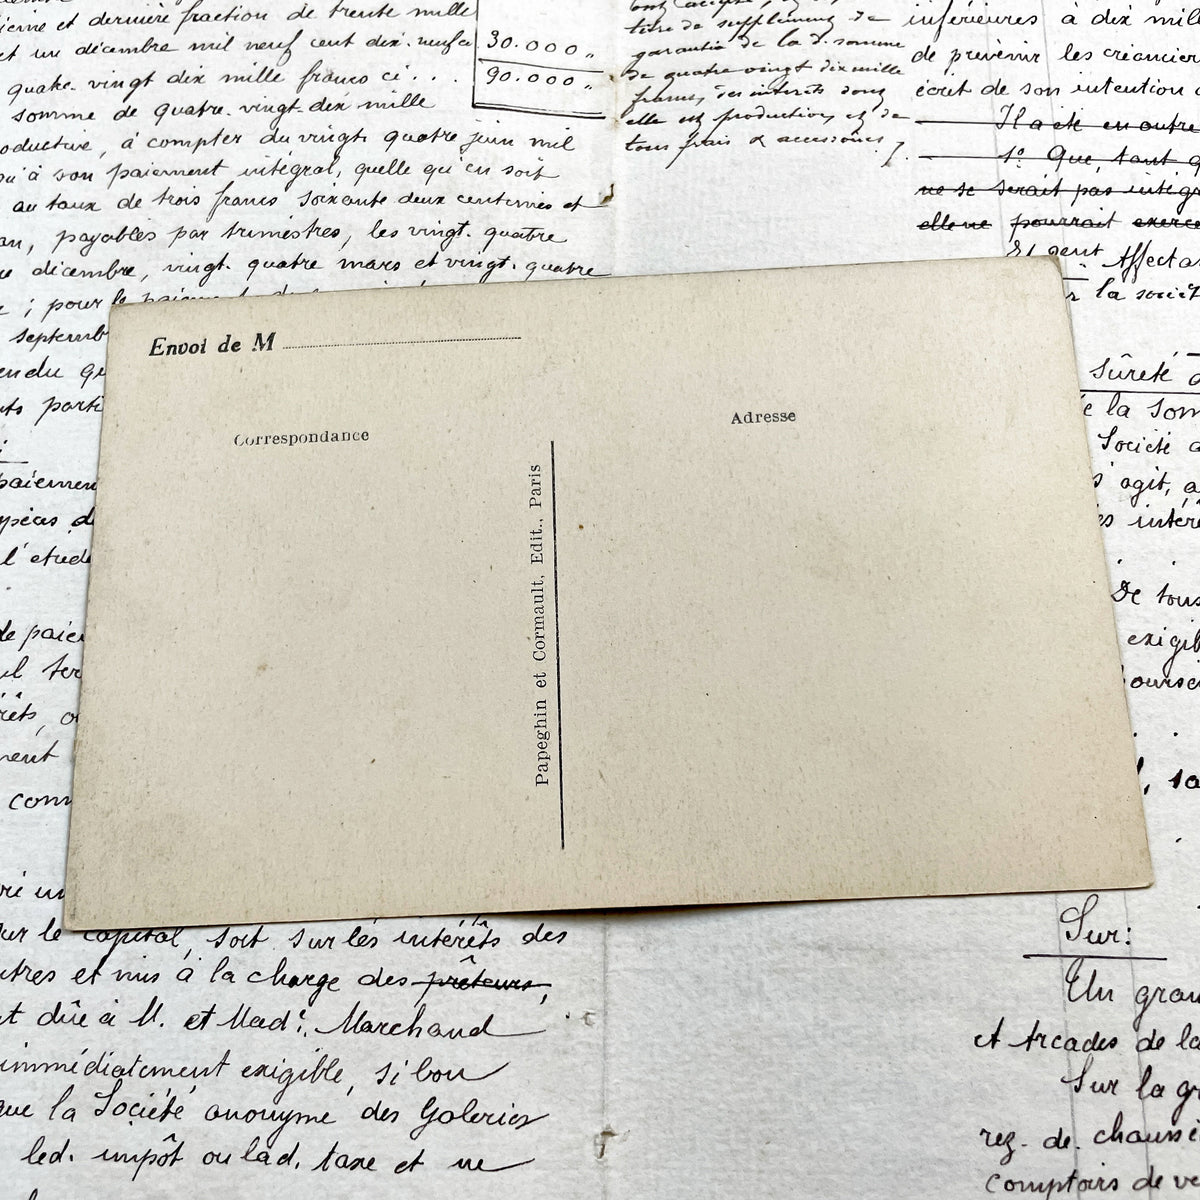 et dernière fraction de trente mille
et un décembre mil neuf cent dix-neuf ce
30.000 "
quatre-vingt dix mille francs ci...
90.000 "
somme de quatre-vingt-dix mille
à compter du vingt-quatre juin mil
son paiement intégral, quelle qu'en soit
au taux de trois francs soixante deux centimes et
an, payables par trimestres, les vingt-quatre
décembre, vingt-quatre mars et vingt-quatre
; pour le
titre de supplément de
garantie de la d. somme
de quatre vingt dix mille
francs, des intérêts dont
elle est productive, et de
tous frais & accessoires /.
inférieures à dix mil
de prévenir les créancier
écrit de son intention
Il a été en outre
1° Que, tant q
ne se serait pas intégr
elle ne pourrait exerce
Et Affecta
la sociét
sûreté
la som
Société
s'agit, a
intére
De tous
exigib
sa
Envoi de M
Correspondance
Papeghin et Cormault, Edit., Paris
Adresse
septemb
endu qu
parti
paiemen
l'étude
de paie
ment
le capital, soit sur les intérêts des
et mis à la charge des prêteurs,
dûe à M. et Mad. Marchand
immédiatement exigible, si bon
que la Société anonyme des Galeries
led. impôt ou lad. taxe et ne
Sur:
Un gran
et Arcades de la
Sur la gr
rez-de-chaussé
comptoirs de ve